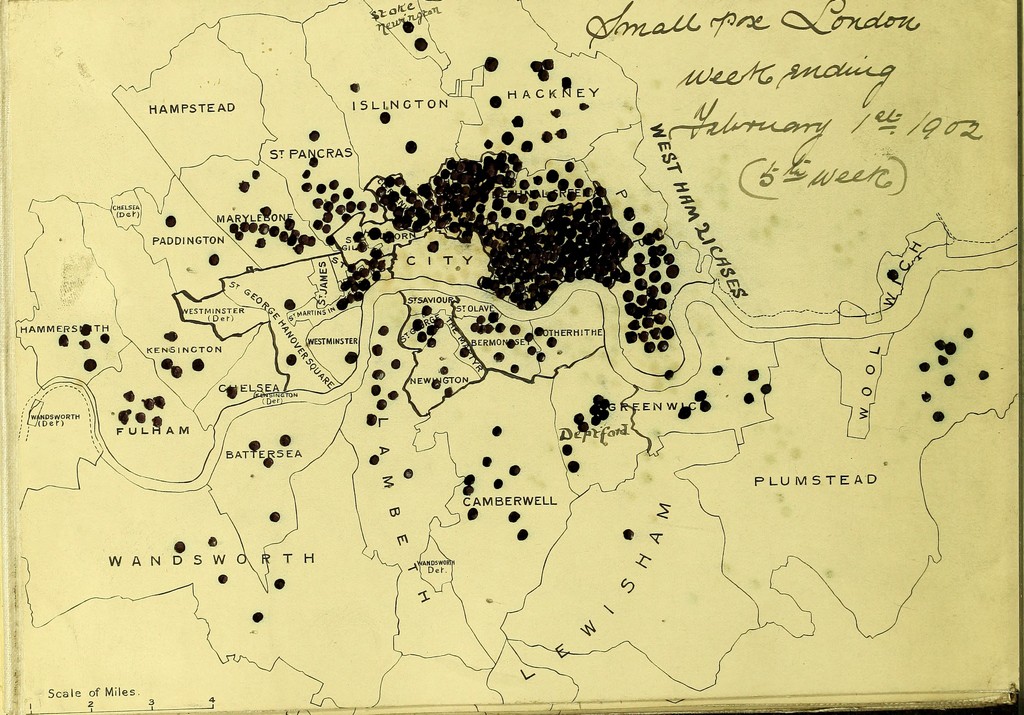 Stoke
Newington
Small pox London
week ending
February 1st 1902
(5th week)
HAMPSTEAD
ISLINGTON
HACKNEY
ST PANCRAS
WEST HAM 21 CASES
CHELSEA
(Det)
MARYLEBONE
PADDINGTON
CITY
ST JAMES
ST GEORGE HANOVER SQUARE
ST MARTINS IN
WESTMINSTER
(Det)
WESTMINSTER
ST SAVIOUR
ST OLAVE
ST GEORGE
THE MARTYR
BERMONDSEY
ROTHERHITHE
WOOLWICH
HAMMERSMITH
KENSINGTON
CHELSEA
(KENSINGTON
Det)
NEWINGTON
WANDSWORTH
(Det)
FULHAM
GREENWICH
Deptford
BATTERSEA
LAMBETH
CAMBERWELL
PLUMSTEAD
WANDSWORTH
WANDSWORTH
Det.
LEWISHAM
Scale of Miles.
1 2 3 4